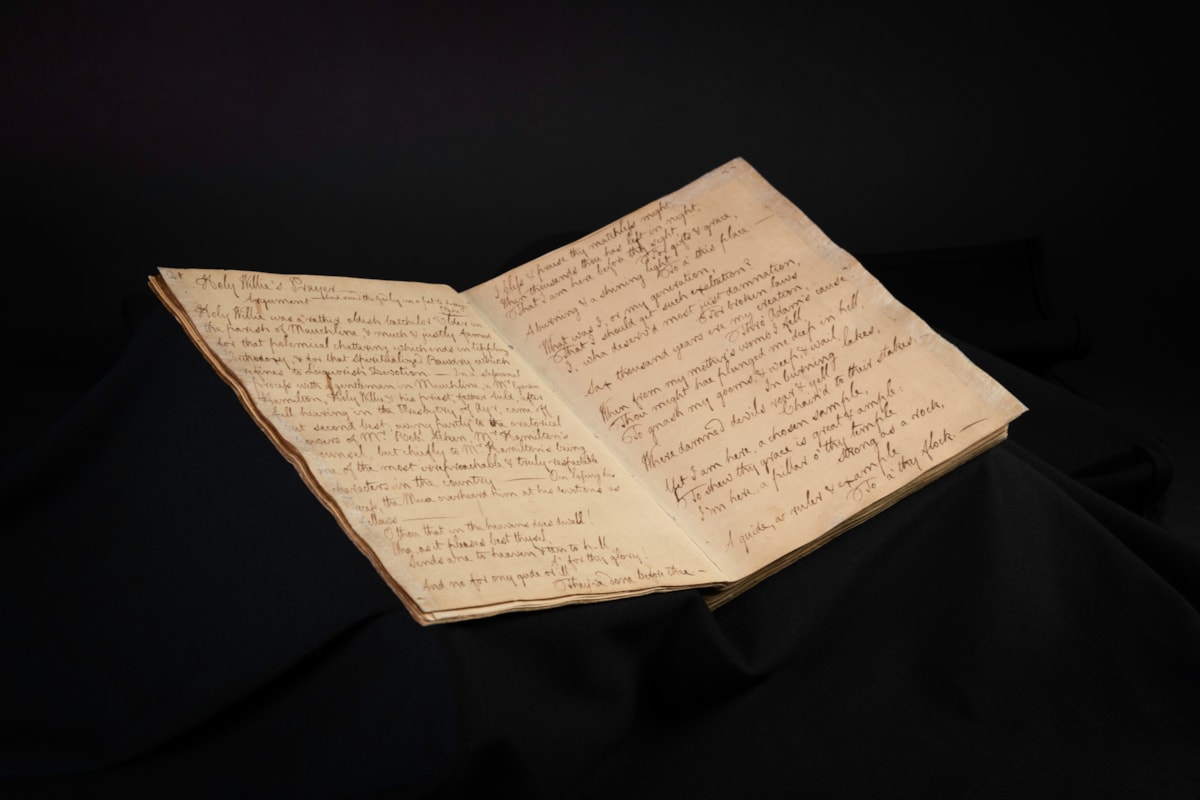 Holy Willie's Prayer —
Argument —
Holy Willie was a rather oldish batchelor Elder in
the parish of Mauchline, & much & justly famed
for that polemical chattering which ends in tippling
Orthodoxy, & for that Spiritualized Bawdry which
refines to Liquorish Devotion — In a sessional
process with a gentleman in Mauchline, a Mr Gavin
Hamilton, Holy Willie, & his priest, father Auld, after
full hearing in the Presbytry of Ayr, came off
but second best, owing partly to the oratorical
powers of Mr Robt Aiken, Mr Hamilton's
Counsel, but chiefly to Mr Hamilton's being
one of the most irreproachable & truly respectable
characters in the country — On losing his
Process, the Muse overheard him at his devotions as
follows —
O thou that in the heavens does dwell!
Wha, as it pleases best thysel,
Sends ane to heaven & ten to hell,
A' for thy glory!
And no for ony gude or ill
They've done before thee —
I bless & praise thy matchless might,
When thousands thou has left in night,
That I am here before thy sight,
For gifts & grace,
A burning & a shining light
To a' this place —
What was I, or my generation,
That I should get such exaltation?
I, wha deserv'd most just damnation,
For broken laws
Sax thousand years ere my creation,
Thro' Adam's cause!
When from my mother's womb I fell,
Thou might hae plunged me deep in hell,
To gnash my gooms, & weep, & wail,
In burning lakes,
Where damned devils roar & yell
Chain'd to their stakes.
Yet I am here, a chosen sample,
To shew thy grace is great & ample:
I'm here, a pillar o' thy temple
Strong as a rock,
A guide, a ruler & example
To a' thy flock. —